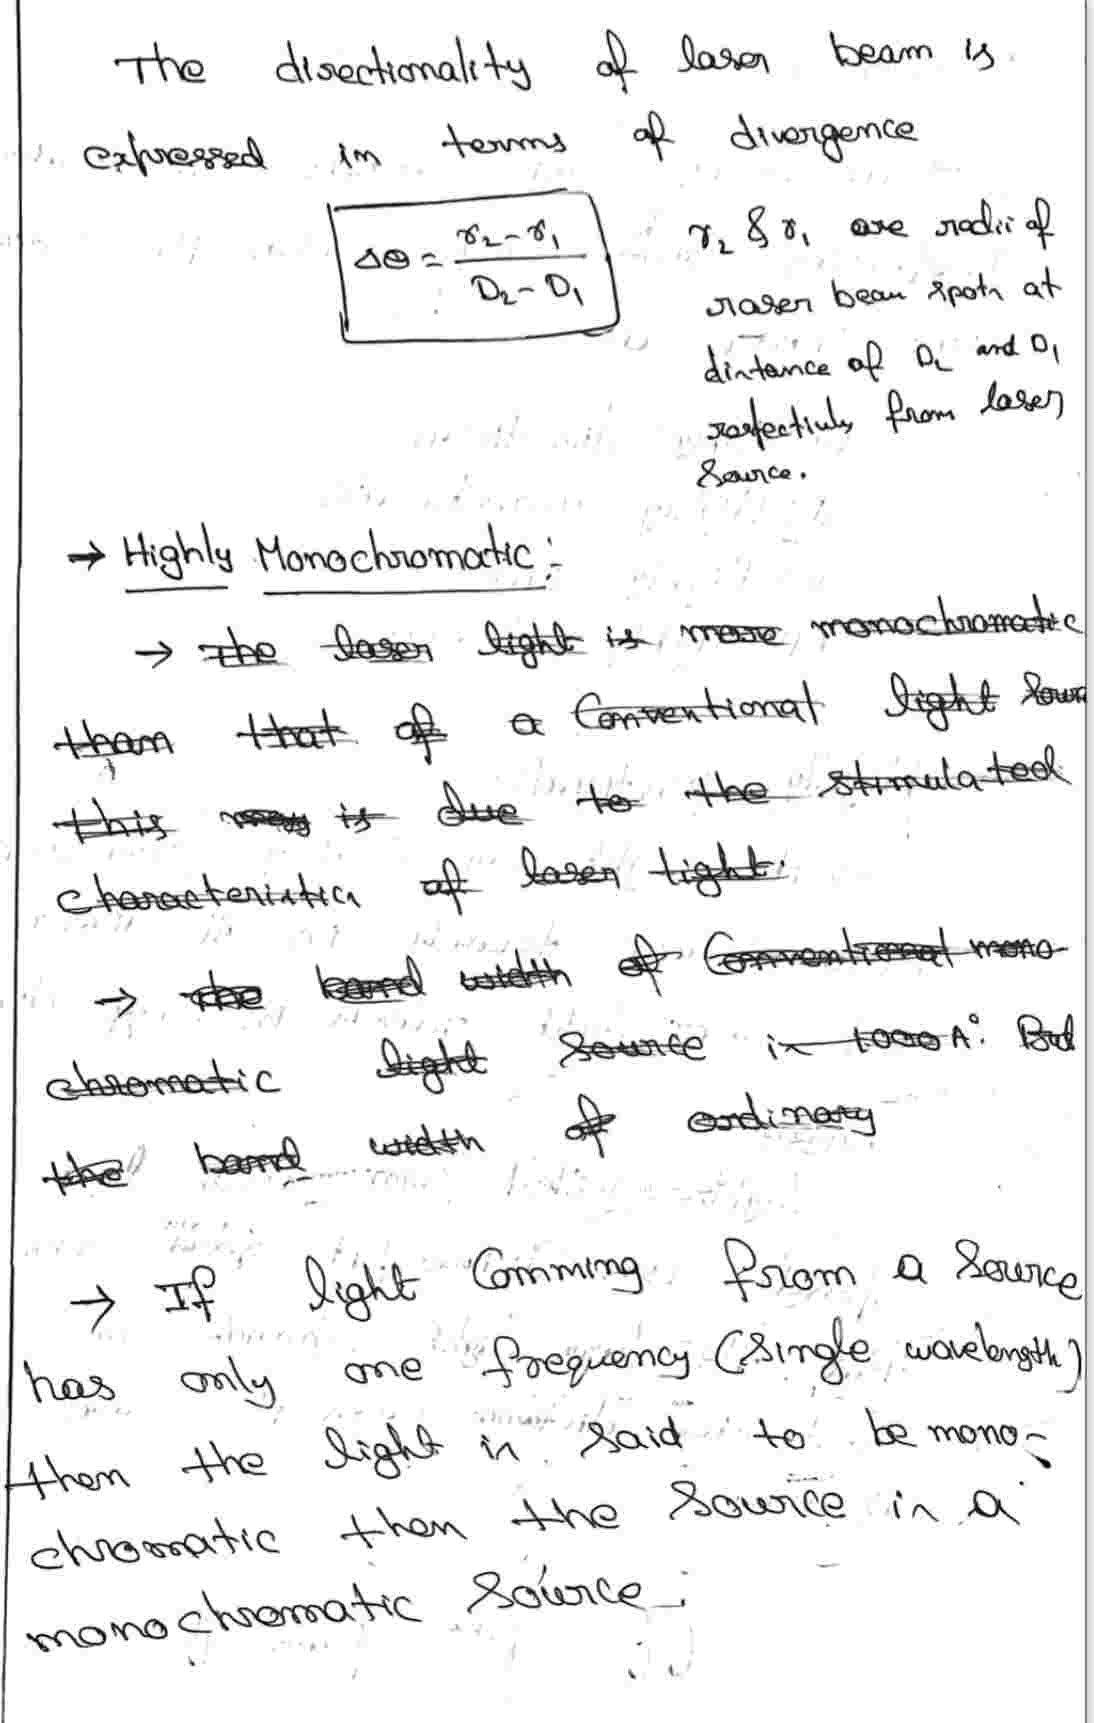 The directionality of laser beam is
expressed in terms of divergence
Δθ = (r₂ - r₁) / (D₂ - D₁)
r₂ & r₁ are radii of
laser beam spots at
distance of D₂ and D₁
respectively from laser
source.
→ Highly Monochromatic :-
→ The laser light is more monochromatic
than that of a Conventional light sour
this is due to the stimulated
characteristics of laser light.
→ the band width of Conventional mono-
chromatic light source is 1000 A°. But
the band width of ordinary
→ If light Comming from a source
has only one frequency (single wavelength)
then the light is said to be mono-
chromatic then the source is a
monochromatic source.